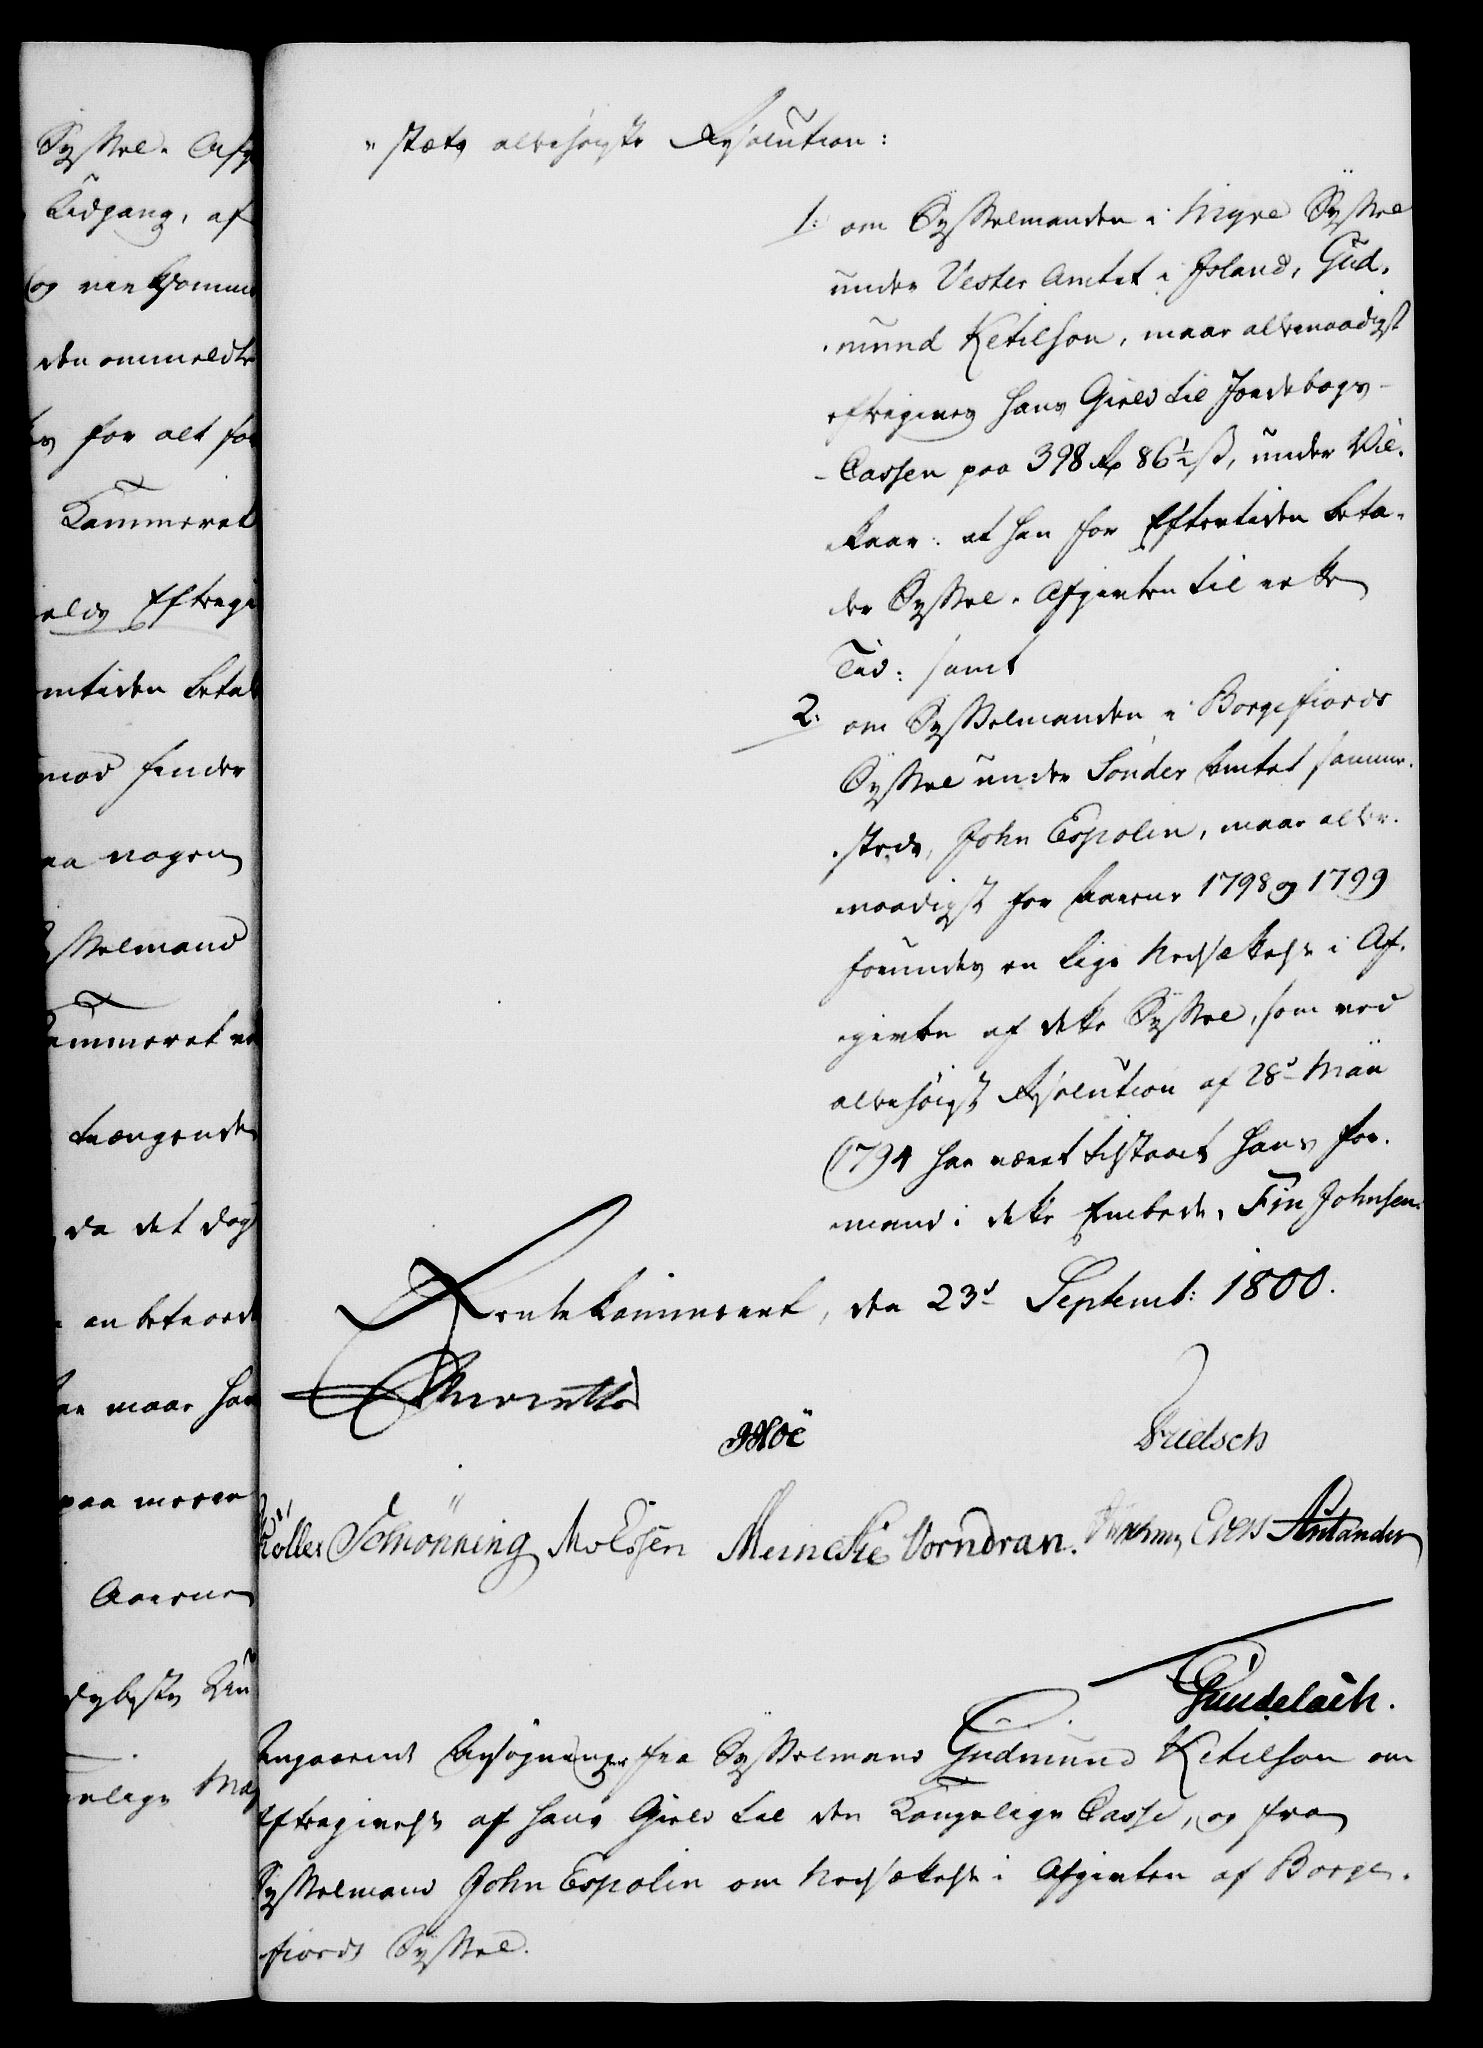 Syssel-Afg
Tidgang, af
og veetkomme
den ommeldte
for alt for
Kammeret
Eftergi
mtiden betal
mod finder
aa nogen
sselmand
Kammeret
trængende
da det dog
maa han
paa
Aarene
dybeste Un
gelige Maj
-stæts allerhøieste Resolution:
1: om Sysselmanden i Myre Syssel
under Vester Amtet i Island, Gud-
-mund Ketilson, maae allernaadigst
eftergives hans Gield til Jordebogs-
-Cassen paa 398 Rd 86½ ß, under Vil-
kaar: at han for Eftertiden beta-
ler Syssel-Afgivten til rette
Tid: samt
2. om Sysselmanden i Borgefiords
Syssel under Sønder Amtet samme-
-steds, John Espolin, maae aller-
naadigst for Aarene 1798 og 1799
forundes en lige Nedsættelse i Af-
givten af dette Syssel, som ved
allerhøigst Resolution af 28d Maii
1794 har været tilstaaet hans For-
mand i dette Embede, Fin Johnsen.
Rentekammeret, den 23d Septemb: 1800.
Reventlow
Moe
Drietsch
Koller Schønning Molssen Meincke Vorndran. Evers Antander
Gundelach.
Angaaende Ansøgninger fra Sysselmand Gudmund Ketilson om
Eftergivelse af hans Gield til den Kongelige Casse, og fra
Sysselmand John Espolin om Nedsættelse i Afgivten af Borge-
fiords Syssel.